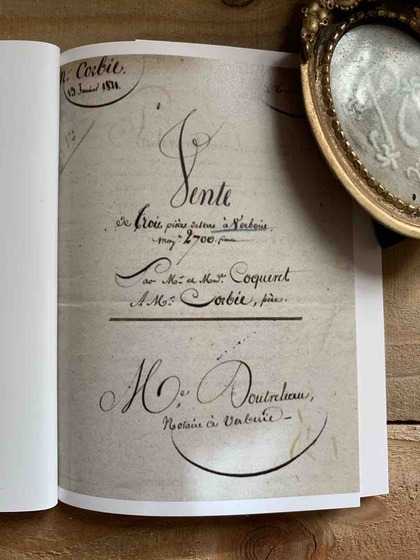 Mr. Corbie.
13 Janvier 18
Vente
de Trois pièces de terre à Verberie
moyt. 2700. francs
Par Mr. et Mme. Coqueret
A Mr. Corbie, père.
Me. Doutreleau,
Notaire à Verberie